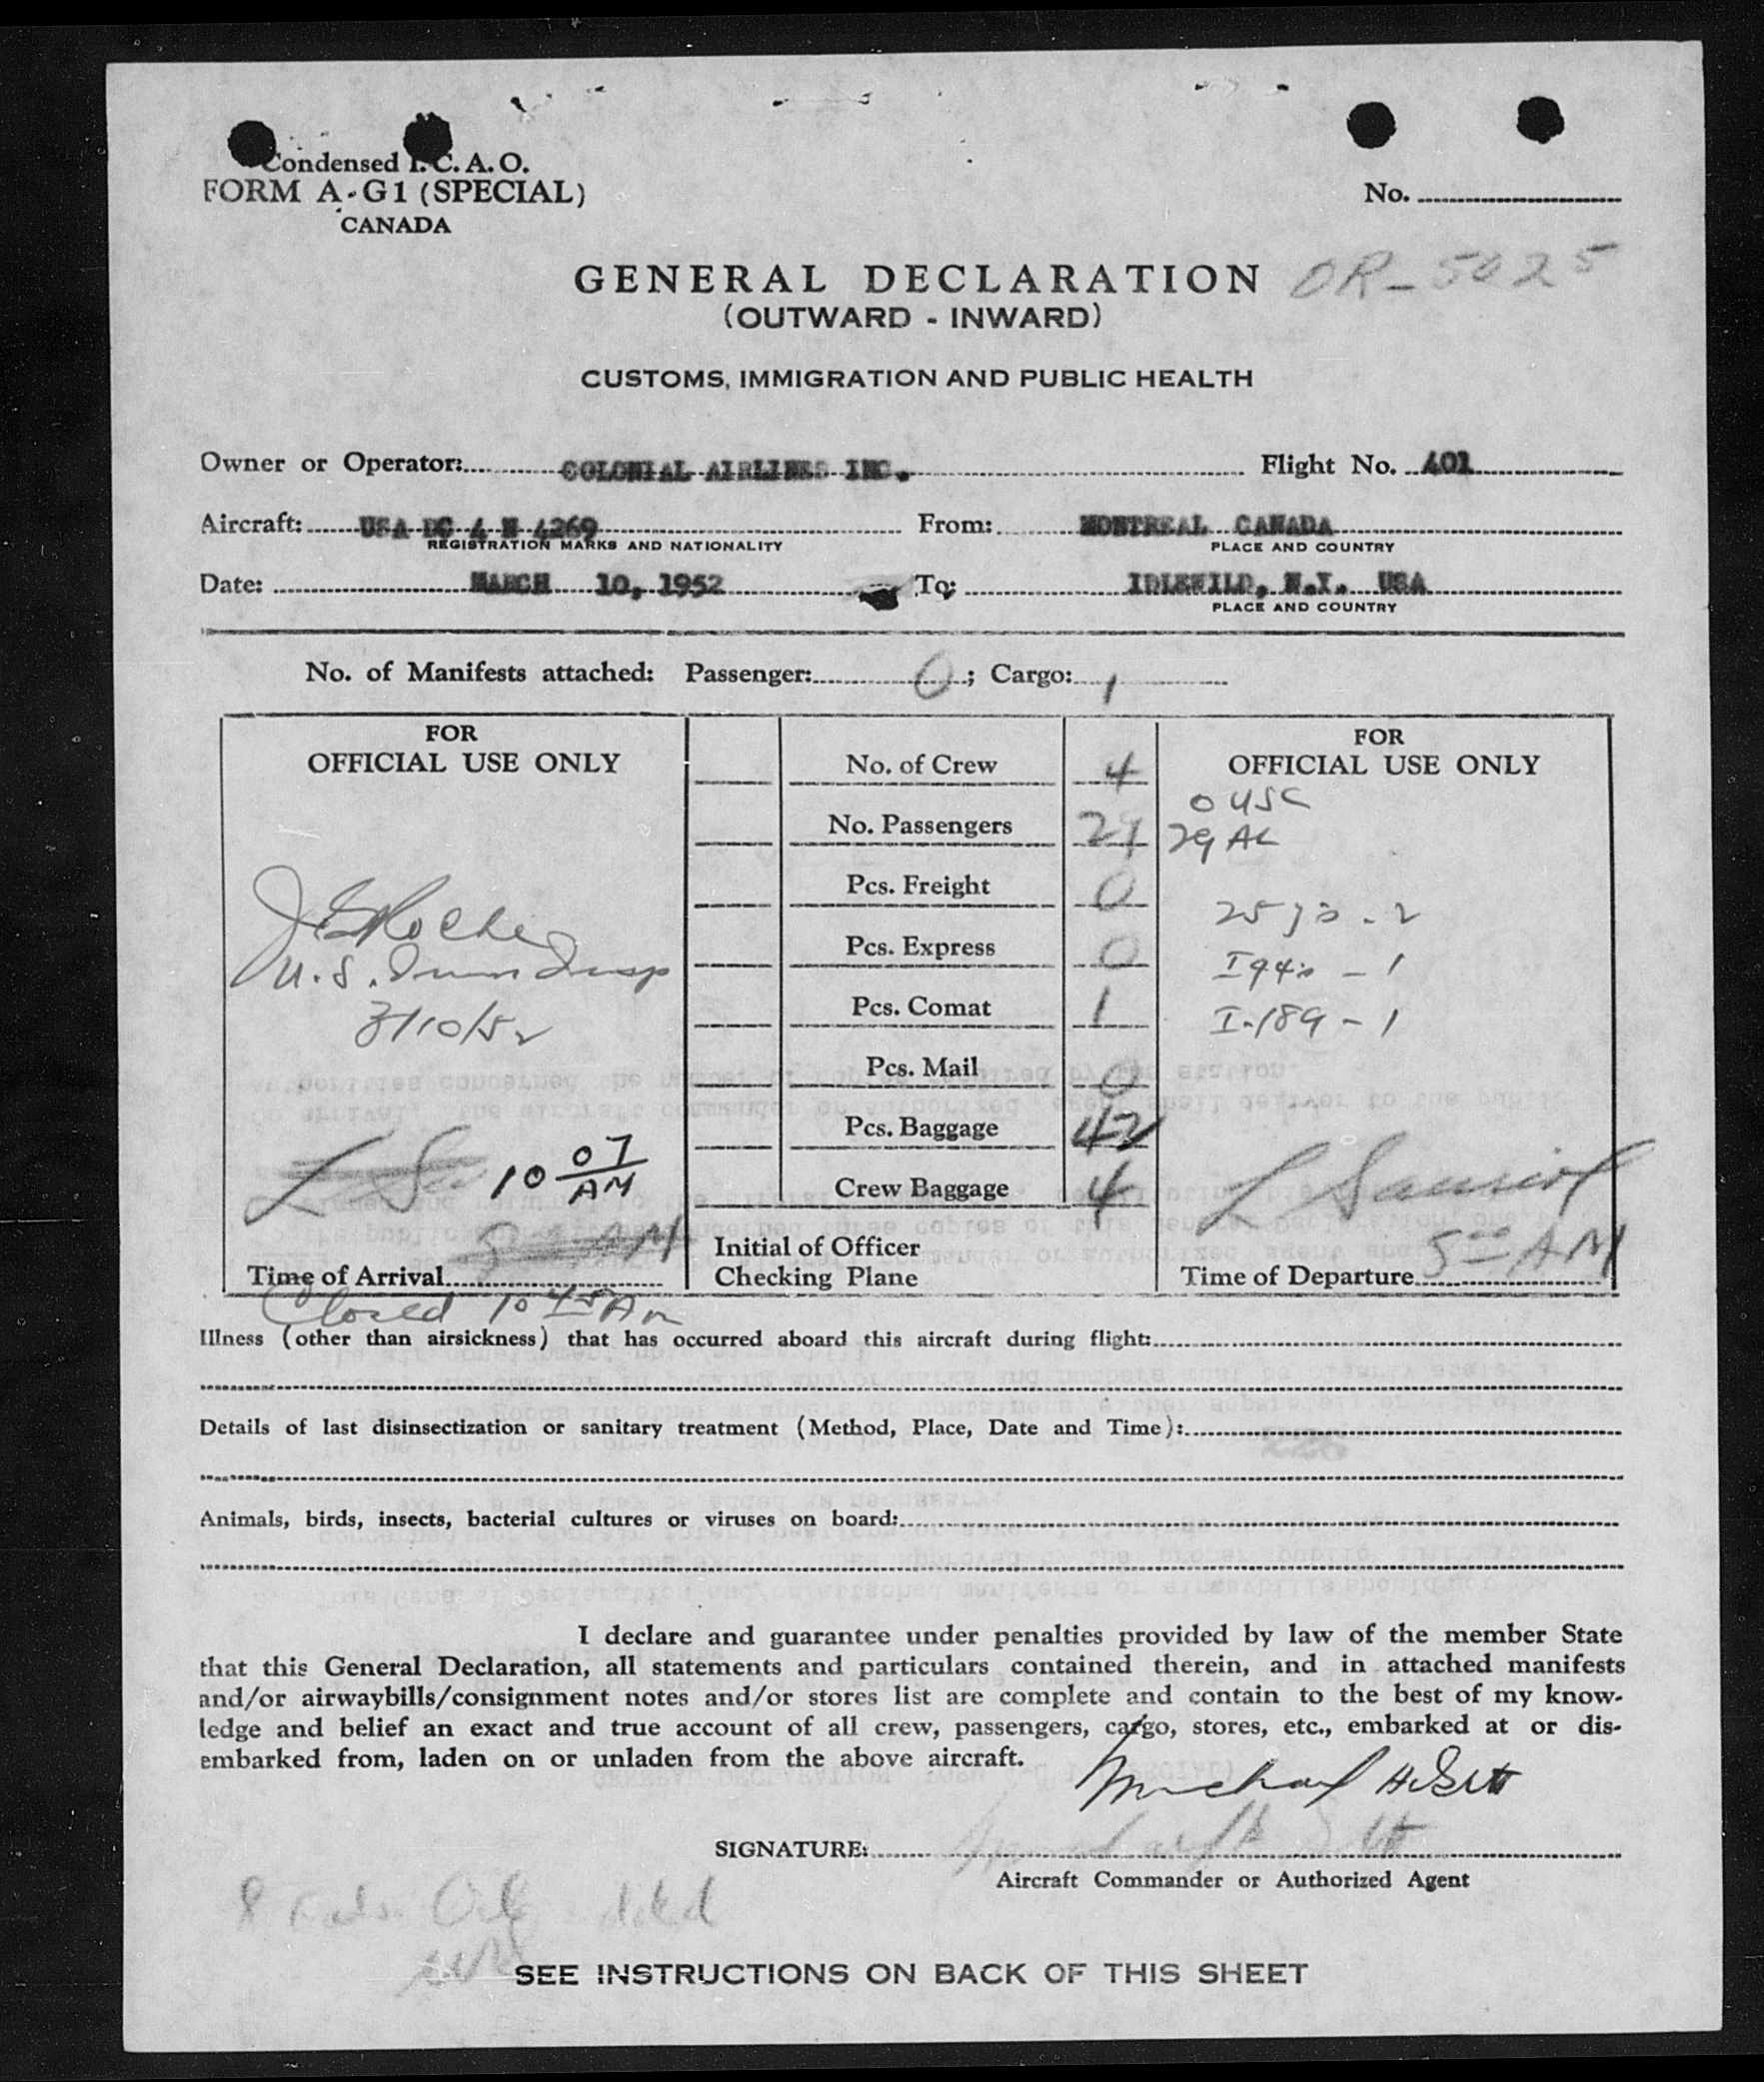 Condensed I.C.A.O.
FORM A-G1 (SPECIAL)
CANADA
No.
GENERAL DECLARATION OR-5025
(OUTWARD - INWARD)
CUSTOMS, IMMIGRATION AND PUBLIC HEALTH
Owner or Operator: COLONIAL AIRLINES INC. Flight No. 401
Aircraft: USA DC 4 N 4269 From: MONTREAL CANADA
REGISTRATION MARKS AND NATIONALITY PLACE AND COUNTRY
Date: MARCH 10, 1952 To: IDLEWILD, N.Y. USA
PLACE AND COUNTRY
No. of Manifests attached: Passenger: 0; Cargo: 1
FOR
OFFICIAL USE ONLY
U.S. Imm Insp
3/10/52
10 07 AM
Time of Arrival
Closed 10 45 AM
No. of Crew 4
No. Passengers 29
Pcs. Freight 0
Pcs. Express 0
Pcs. Comat 1
Pcs. Mail 0
Pcs. Baggage 42
Crew Baggage 4
Initial of Officer
Checking Plane
FOR
OFFICIAL USE ONLY
0 USC
29 AL
I94s - 1
I-189 - 1
Time of Departure 5 00 AM
Illness (other than airsickness) that has occurred aboard this aircraft during flight:
Details of last disinsectization or sanitary treatment (Method, Place, Date and Time):
Animals, birds, insects, bacterial cultures or viruses on board:
I declare and guarantee under penalties provided by law of the member State
that this General Declaration, all statements and particulars contained therein, and in attached manifests
and/or airwaybills/consignment notes and/or stores list are complete and contain to the best of my know-
ledge and belief an exact and true account of all crew, passengers, cargo, stores, etc., embarked at or dis-
embarked from, laden on or unladen from the above aircraft.
Michael
SIGNATURE:
Aircraft Commander or Authorized Agent
SEE INSTRUCTIONS ON BACK OF THIS SHEET